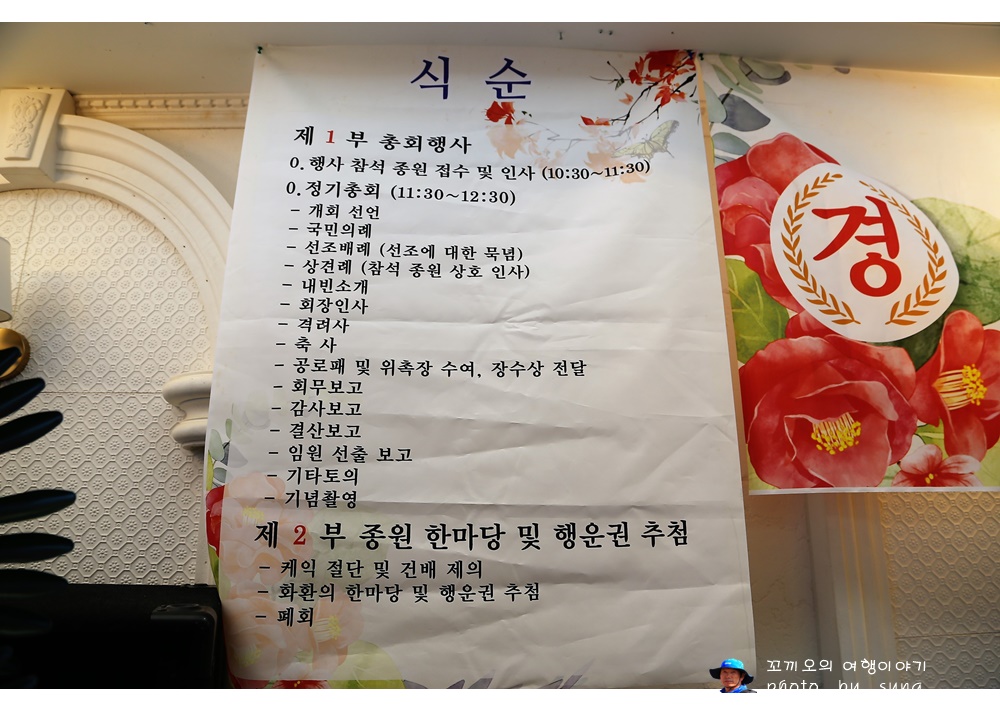 식 순
제 1 부 총회행사
0. 행사 참석 종원 접수 및 인사 (10:30~11:30)
0. 정기총회 (11:30~12:30)
- 개회 선언
- 국민의례
- 선조배례 (선조에 대한 묵념)
- 상견례 (참석 종원 상호 인사)
- 내빈소개
- 회장인사
- 격려사
- 축 사
- 공로패 및 위촉장 수여, 장수상 전달
- 회무보고
- 감사보고
- 결산보고
- 임원 선출 보고
- 기타토의
- 기념촬영
제 2 부 종원 한마당 및 행운권 추첨
- 케익 절단 및 건배 제의
- 화환의 한마당 및 행운권 추첨
- 폐회
경
꼬끼오의 여행이야기
photo by sung